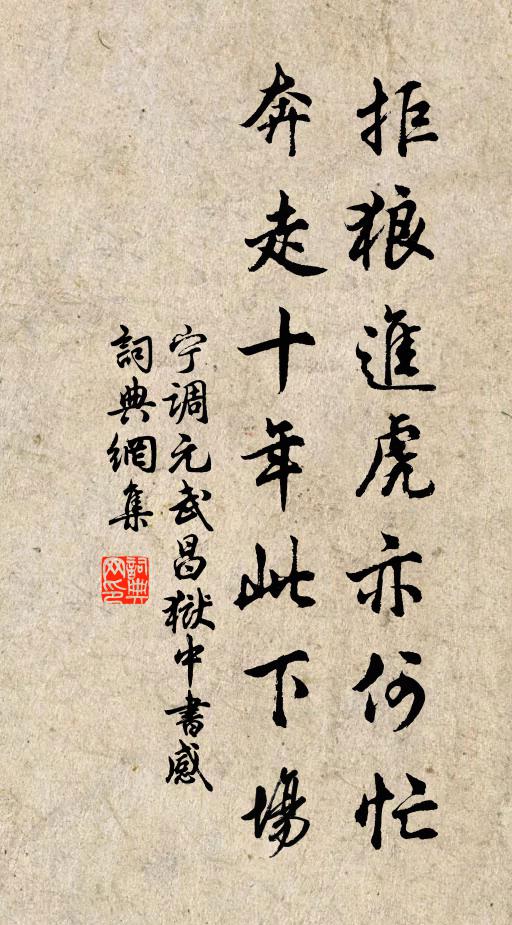 拒狼進虎亦何忙
奔走十年此下場
宁調元武昌獄中書感
詞典網集
詞典
网印